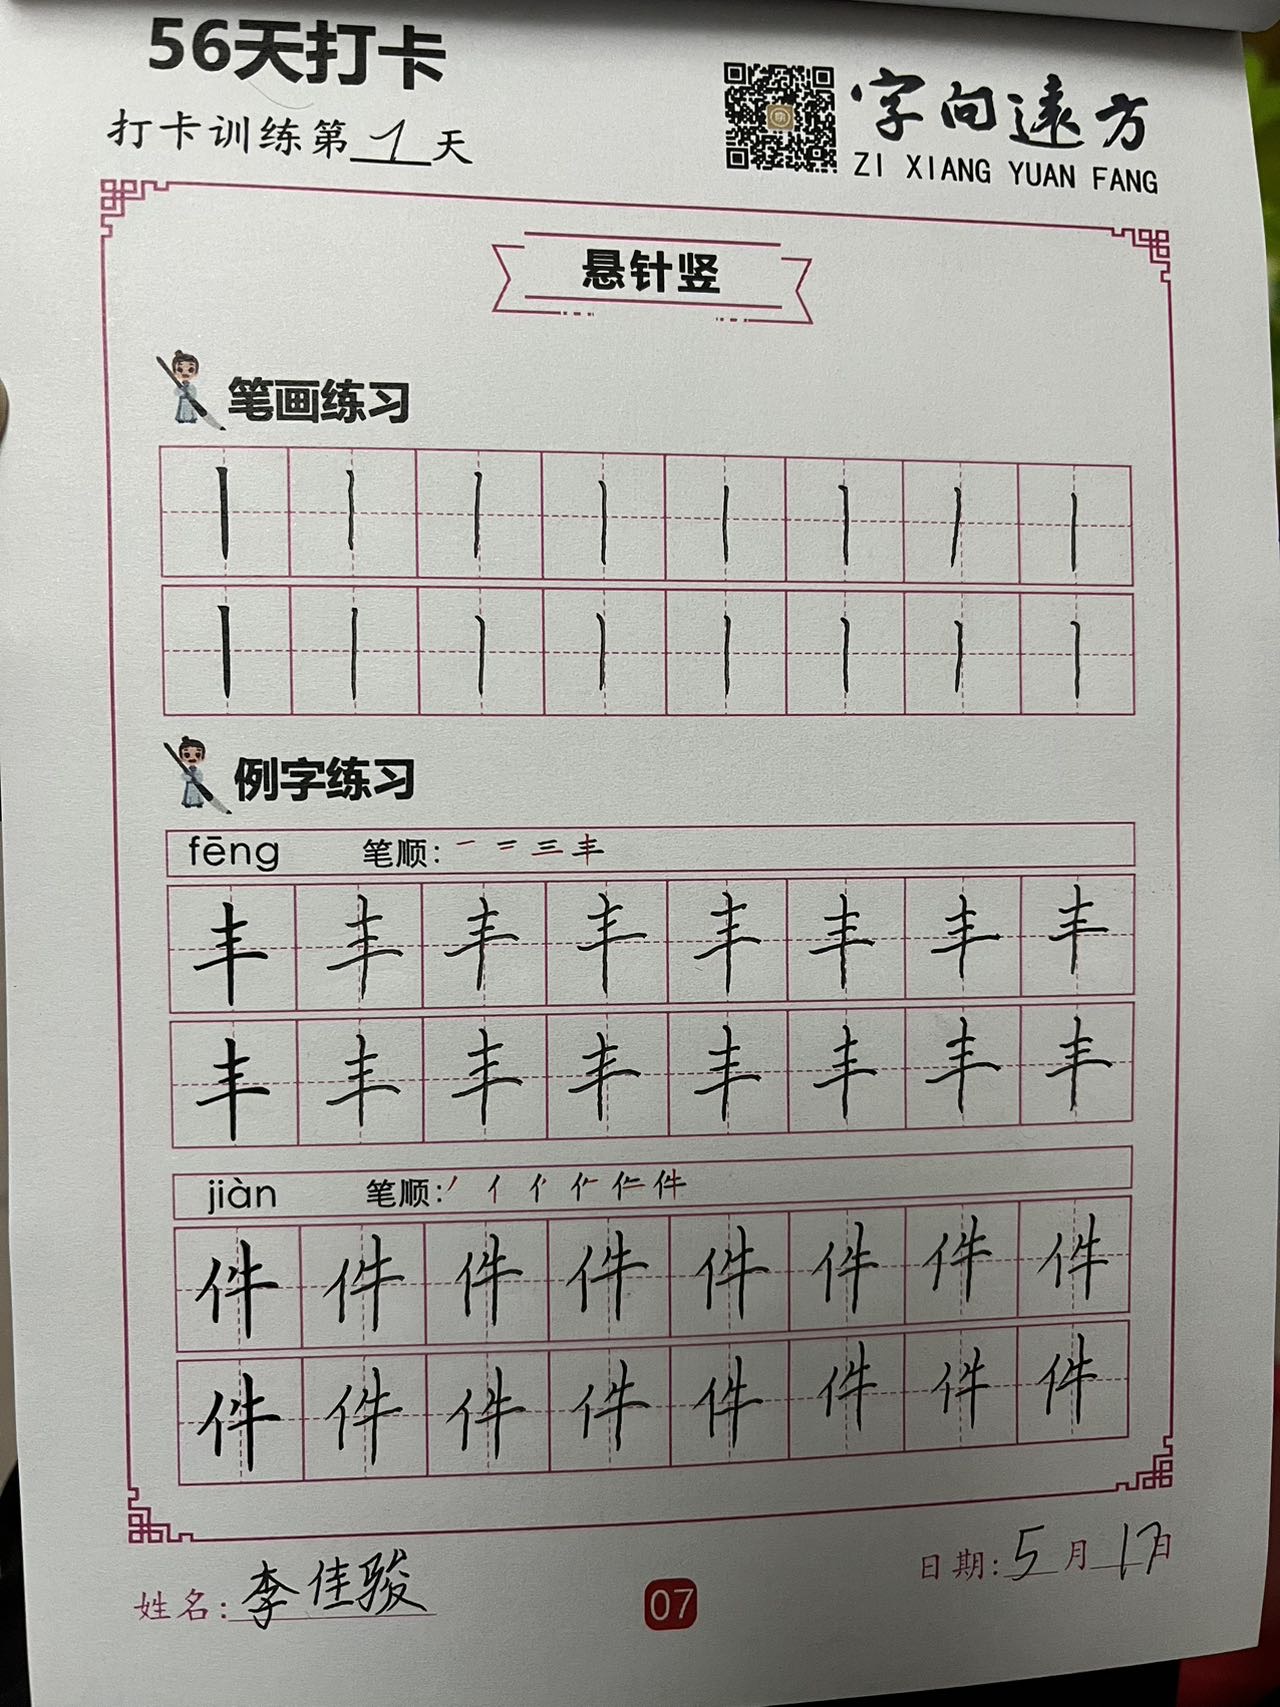 56天打卡
打卡训练第1天
字向远方
ZI XIANG YUAN FANG
悬针竖
笔画练习
丨 丨 丨 丨 丨 丨 丨 丨
丨 丨 丨 丨 丨 丨 丨 丨
例字练习
fēng 笔顺: 一 二 三 丰
丰 丰 丰 丰 丰 丰 丰 丰
丰 丰 丰 丰 丰 丰 丰 丰
jiàn 笔顺: 丿 亻 件
件 件 件 件 件 件 件 件
件 件 件 件 件 件 件 件
姓名: 李佳骏
07
日期: 5月17日